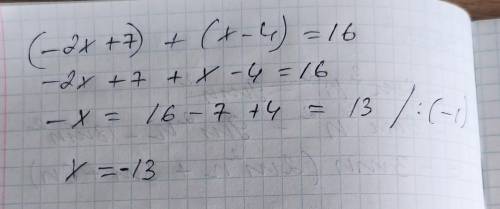 (-2x+7) + (x-4) = 16
-2x+7 + x-4 = 16
-x = 16 - 7 +4 = 13 /:(-1)
x = -13